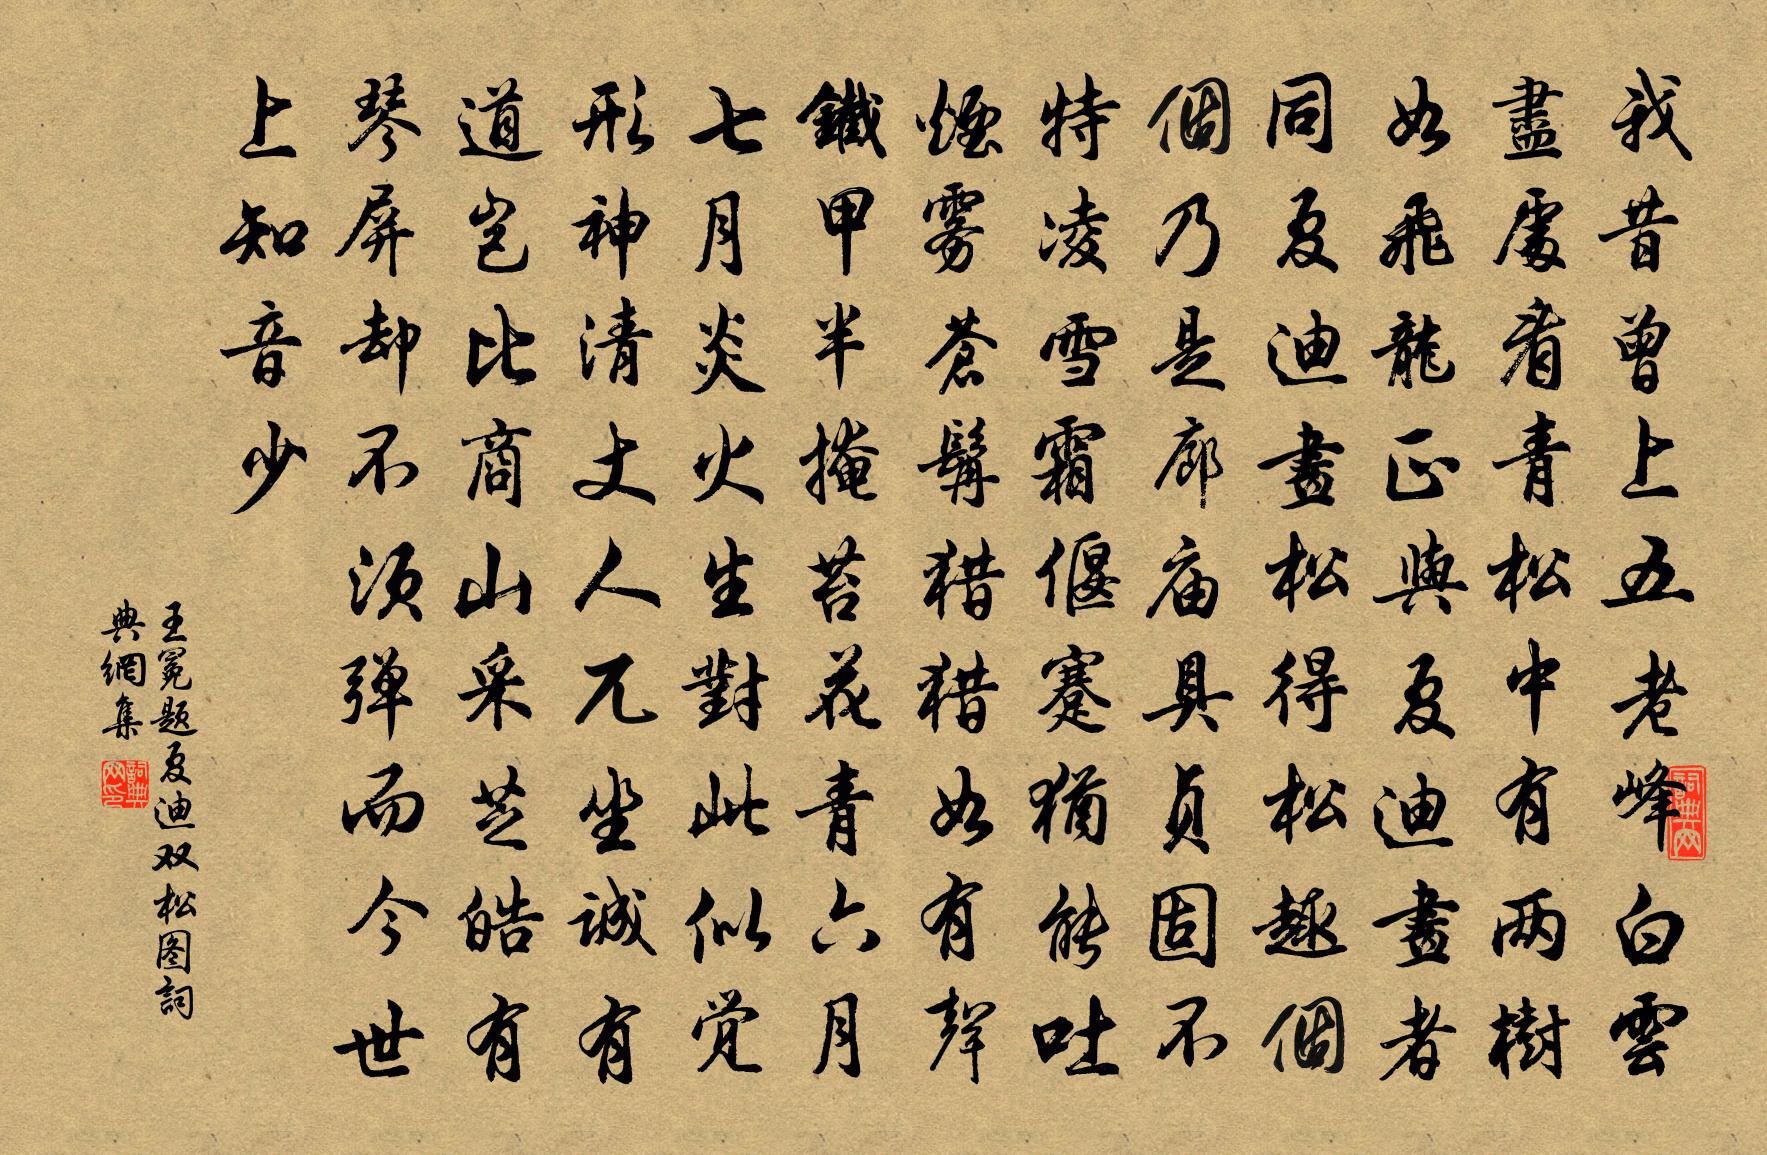 我昔曾上五老峰白雲
盡處看青松中有两樹
如飛龍正與夏迪畫者
同夏迪畫松得松趣個
個乃是廊庙具貞固不
特凌雪霜偃蹇猶能吐
煙雾蒼髯猎猎如有聲
鐵甲半掩苔花青六月
七月炎火生對此似觉
形神清丈人兀坐誠有
道岂比商山采芝皓有
琴屏却不須弹而今世
上知音少
王冕题夏迪双松图詞
典網集
詞典网